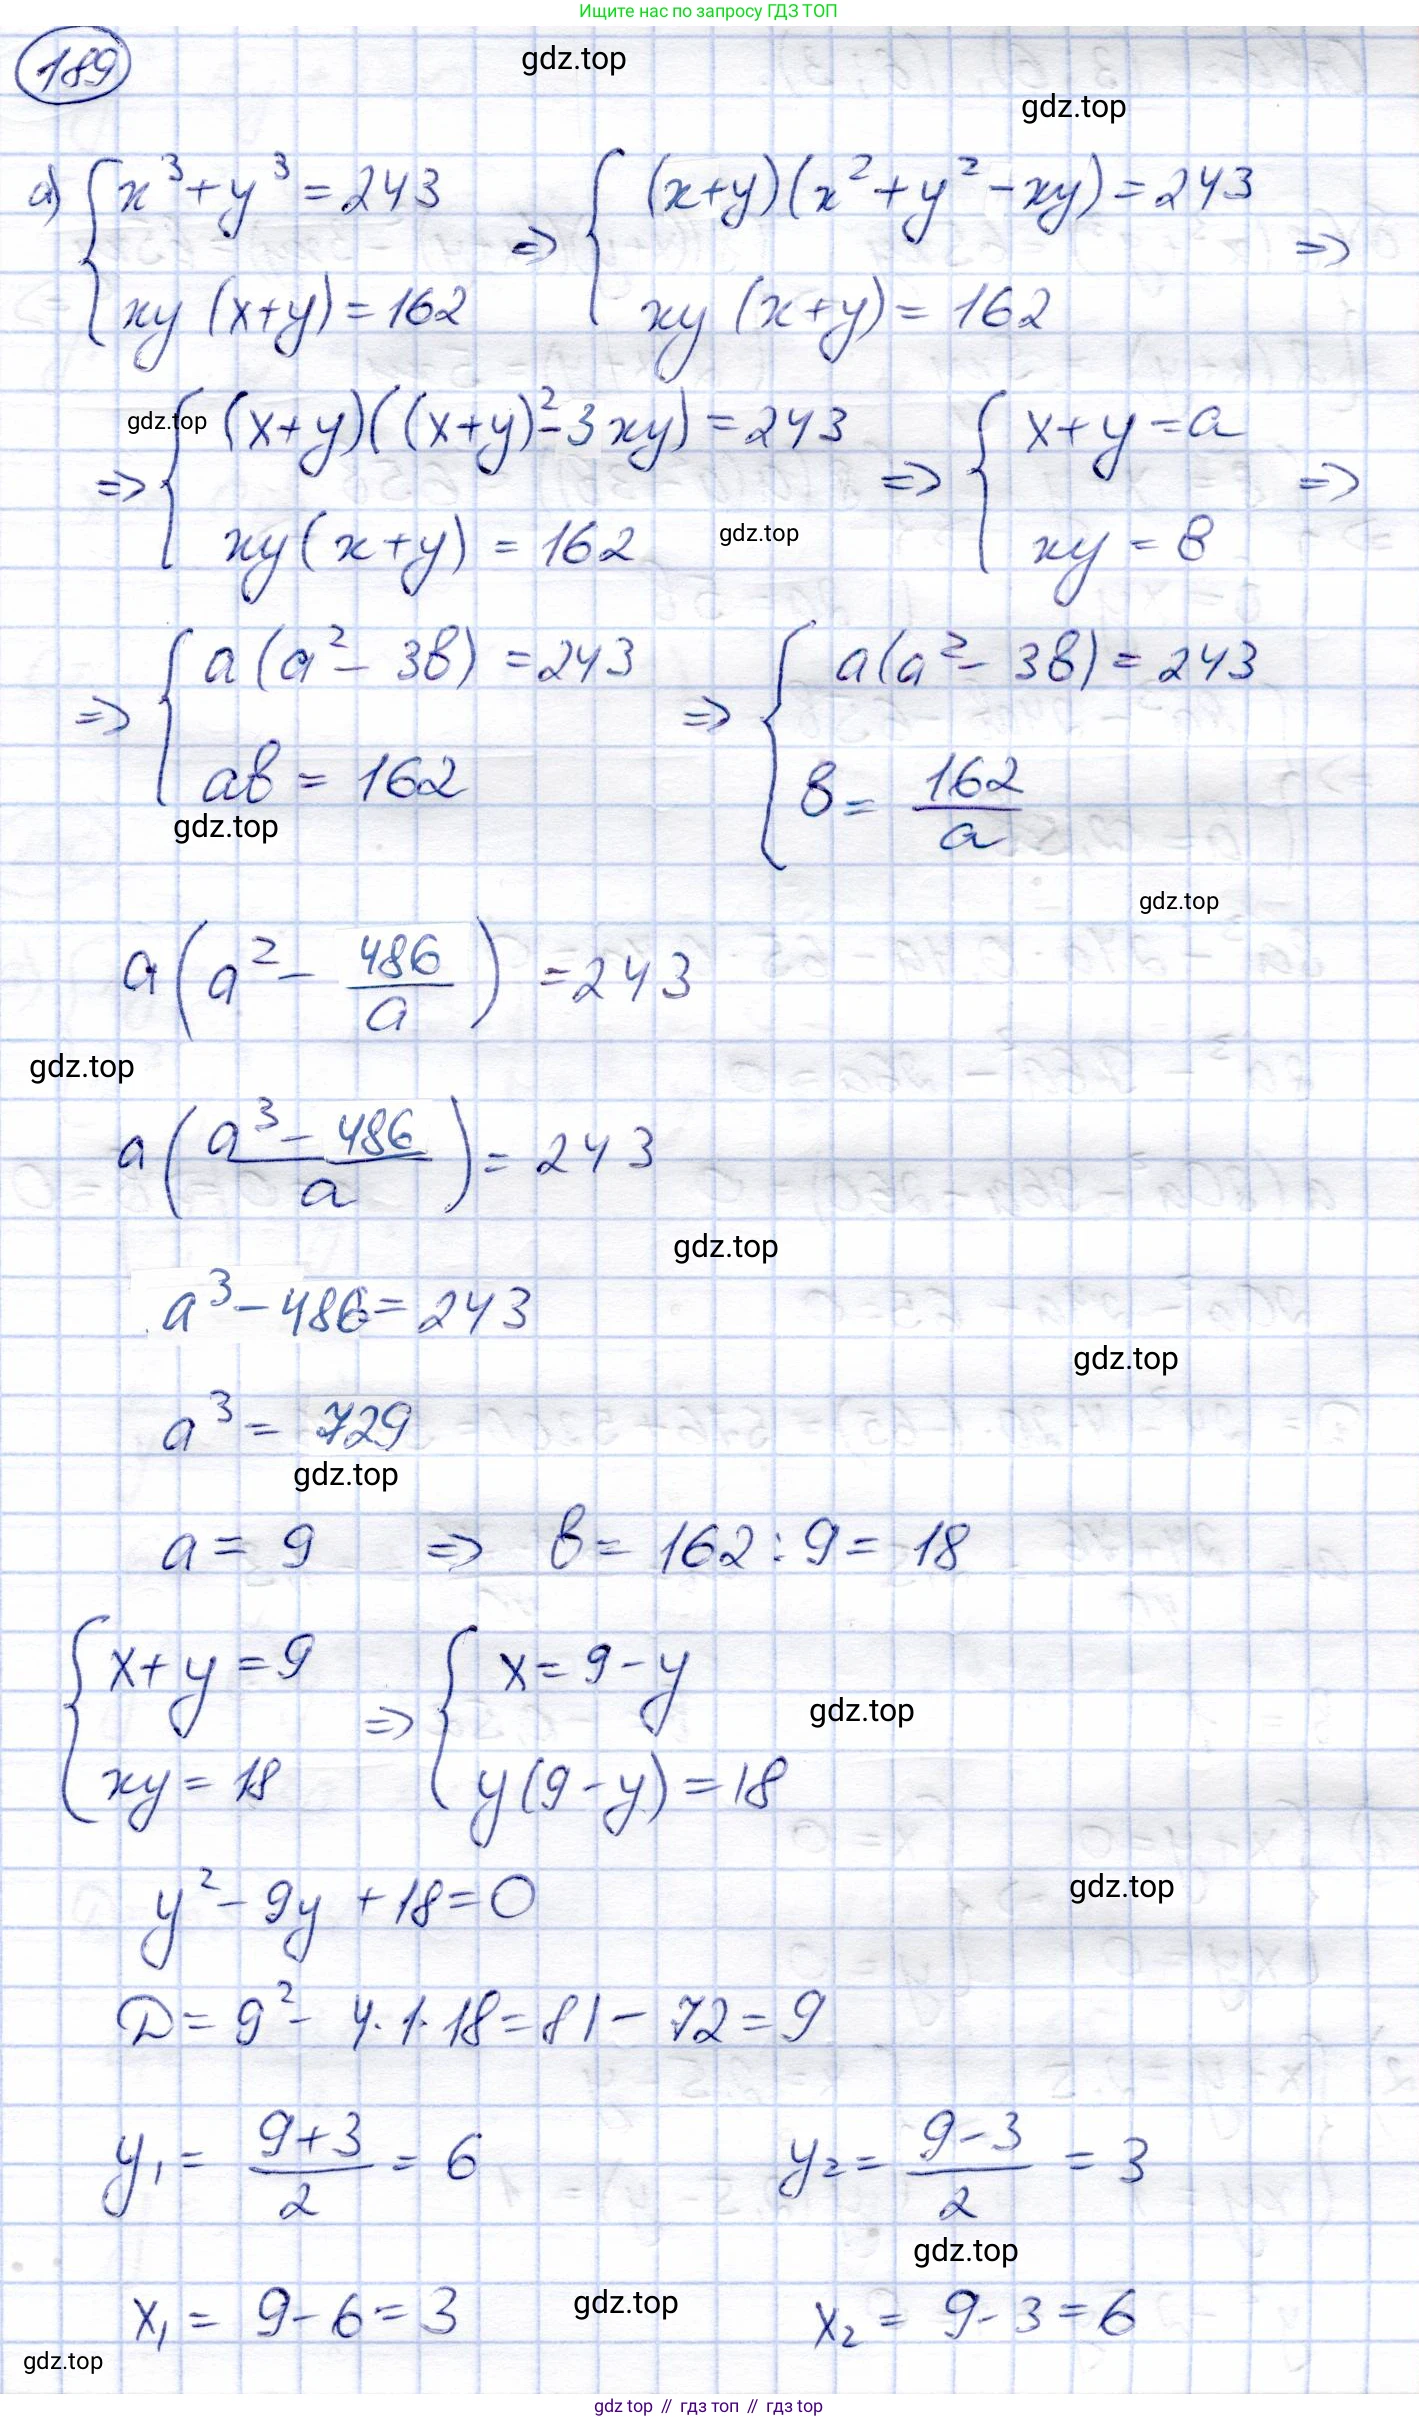 Ищите нас по запросу ГДЗ ТОП
189
gdz.top
gdz.top
а) { x³ + y³ = 243 => { (x+y)(x² + y² - xy) = 243 =>
{ xy (x+y) = 162 { xy (x+y) = 162
gdz.top
=> { (x+y)((x+y)² - 3xy) = 243 => { x+y = a =>
{ xy(x+y) = 162 { xy = в
gdz.top
=> { a(a² - 3в) = 243 => { a(a² - 3в) = 243
{ aв = 162 { в = 162/a
gdz.top
gdz.top
a(a² - 486/a) = 243
gdz.top
a((a³ - 486)/a) = 243
gdz.top
a³ - 486 = 243
gdz.top
a³ = 729
gdz.top
a = 9 => в = 162 : 9 = 18
{ x+y = 9 => { x = 9 - y
{ xy = 18 { y(9-y) = 18
gdz.top
y² - 9y + 18 = 0
gdz.top
D = 9² - 4·1·18 = 81 - 72 = 9
y₁ = (9+3)/2 = 6 y₂ = (9-3)/2 = 3
gdz.top
x₁ = 9 - 6 = 3 x₂ = 9 - 3 = 6
gdz.top
gdz.top
gdz top // гдз топ // гдз top